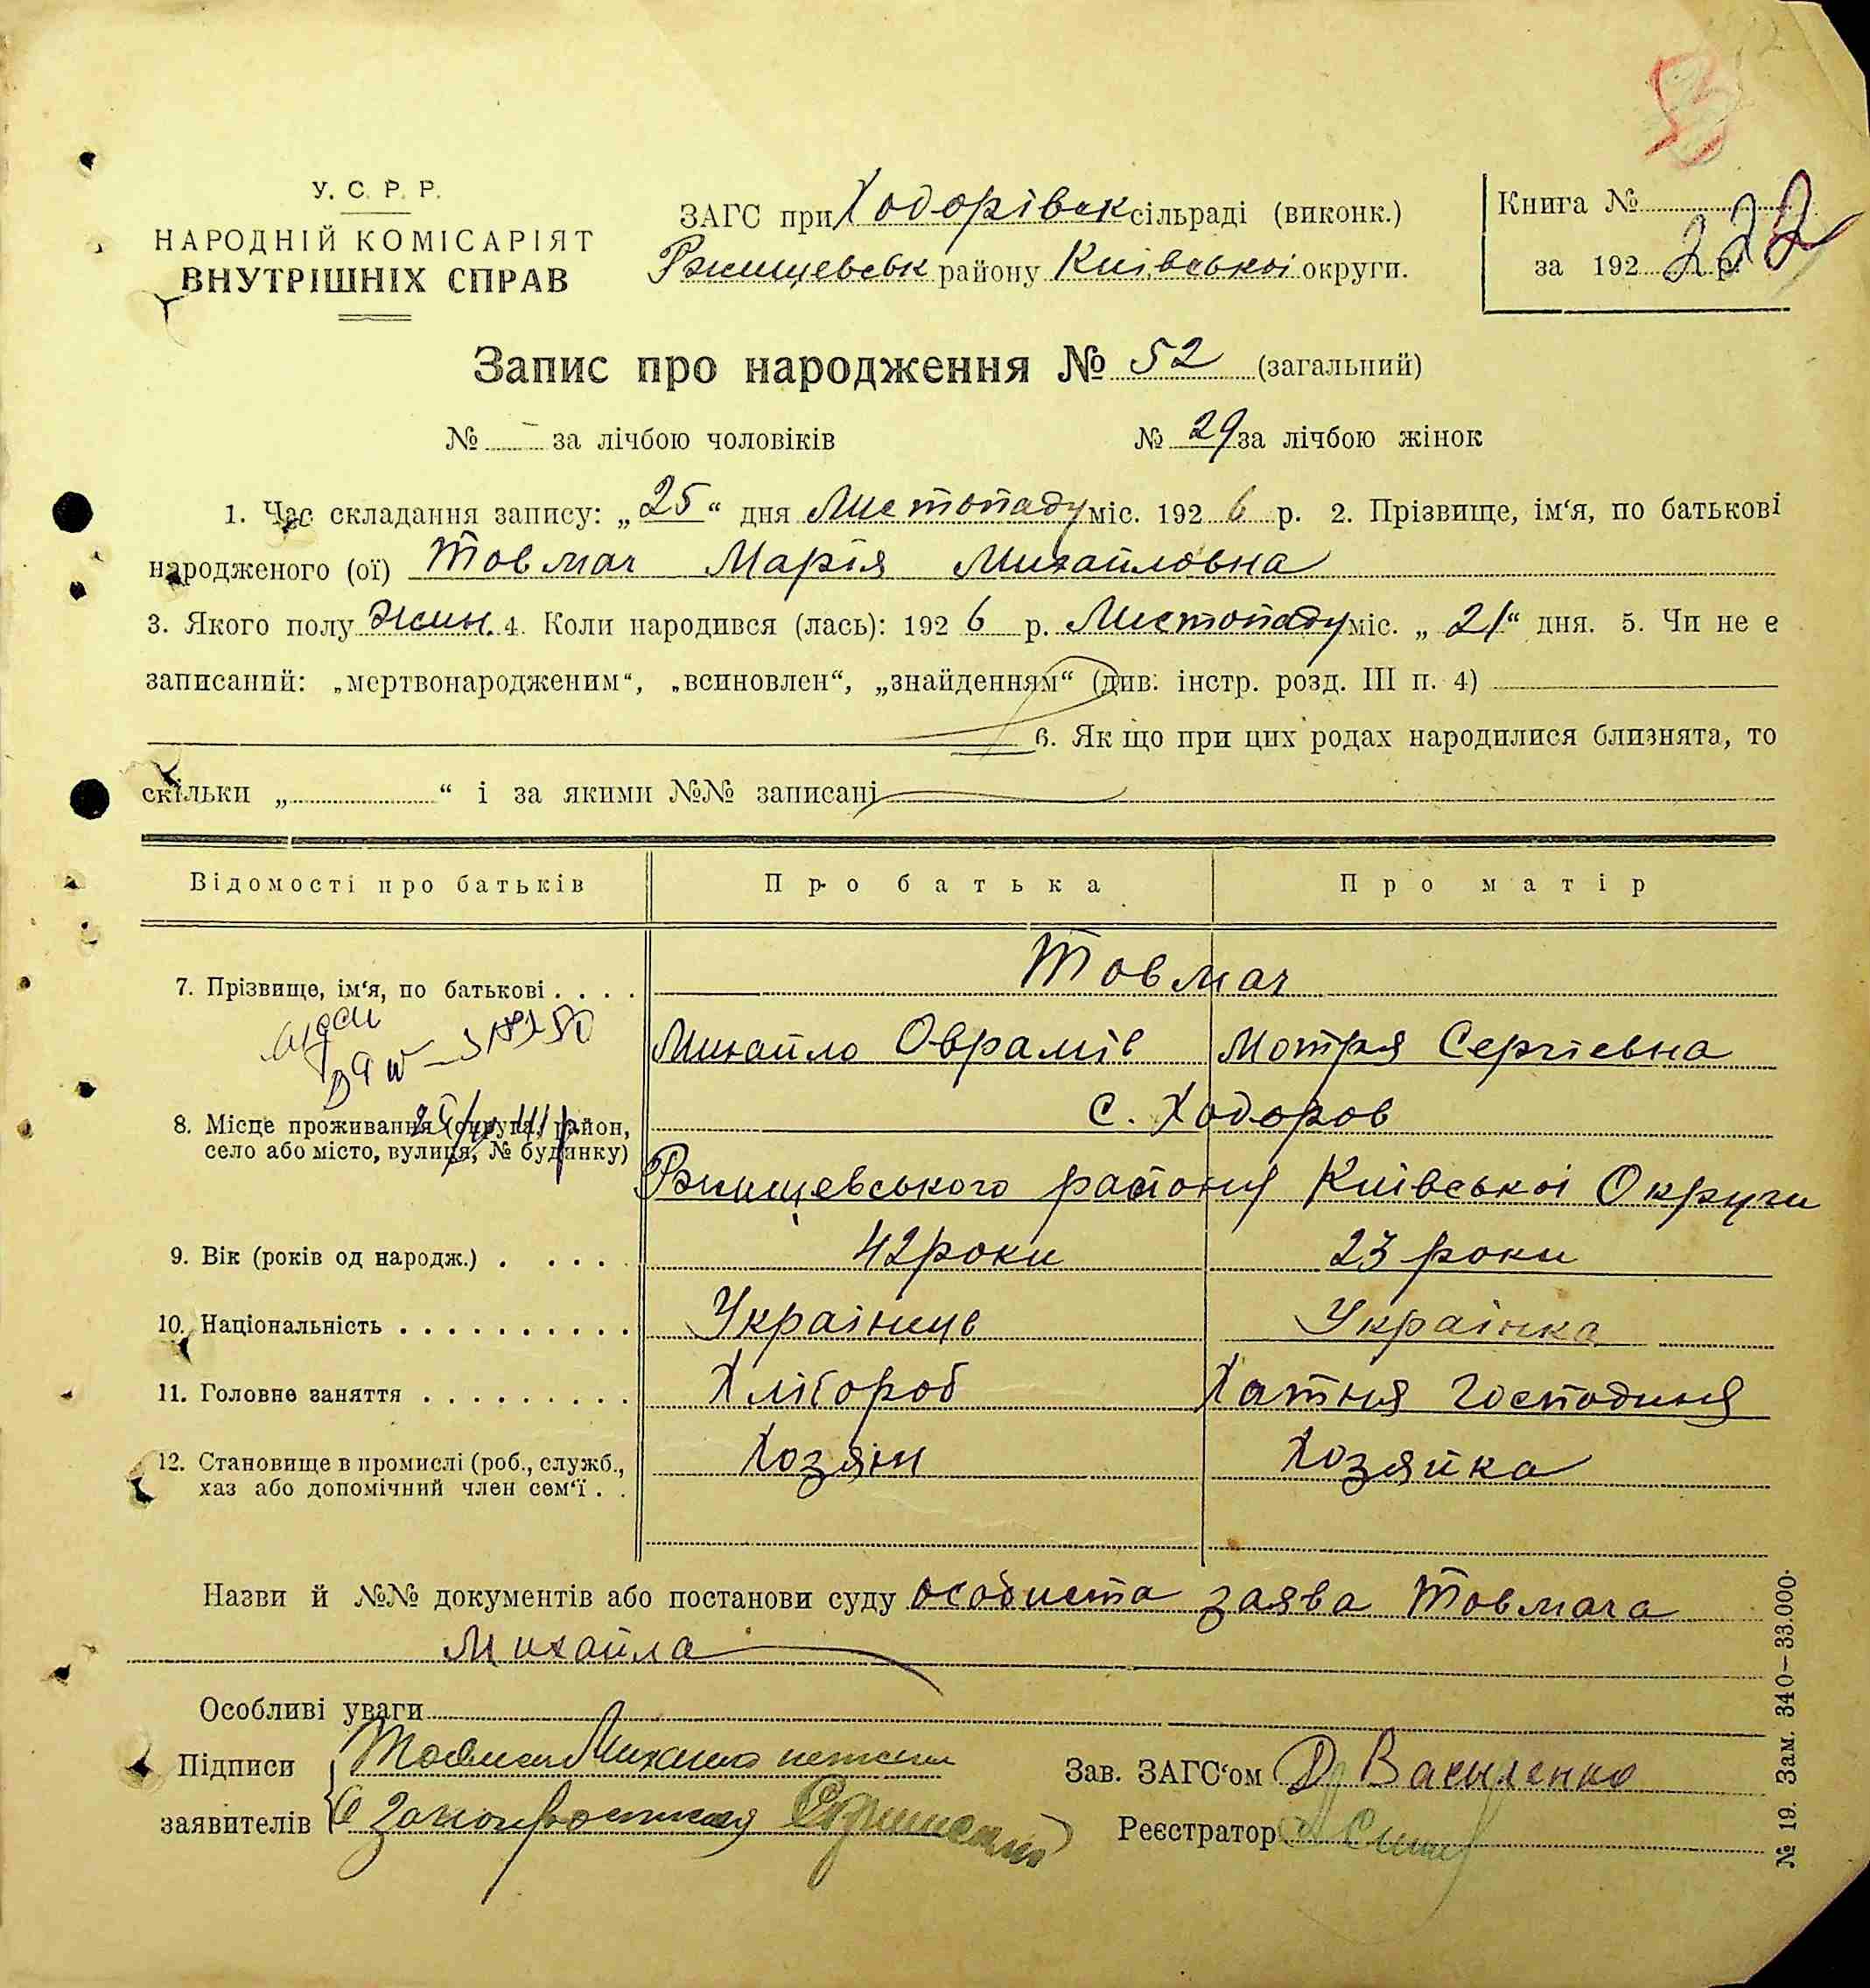 У. С. Р. Р.
НАРОДНІЙ КОМІСАРІЯТ
ВНУТРІШНІХ СПРАВ
ЗАГС при Ходорівск сільраді (виконк.)
Ржищевськ району Київської округи.
Книга №
за 192 р.
222
Запис про народження № 52 (загальний)
№ - за лічбою чоловіків № 29 за лічбою жінок
1. Час складання запису: „25“ дня Листопаду міс. 1926 р. 2. Прізвище, ім‘я, по батькові
народженого (ої) Товмач Марія Михайловна
3. Якого полу жин. 4. Коли народився (лась): 1926 р. Листопаду міс. „21“ дня. 5. Чи не є
записаний: „мертвонародженим“, „всиновлен“, „знайденням“ (див. інстр. розд. III п. 4)
6. Як що при цих родах народилися близнята, то
скільки „ “ і за якими №№ записані
Відомості про батьків Про батька Про матір
7. Прізвище, ім‘я, по батькові . . . . Товмач
Михайло Оврамів Мотря Сергіевна
8. Місце проживання (округа, район,
село або місто, вулиця, № будинку)
с. Ходоров
Ржищевського району Київської Округи
9. Вік (років од народж.) . . . . . 42 роки 23 роки
10. Національність . . . . . . . . . . Українець Українка
11. Головне заняття . . . . . . . . . Хлібороб Хатня Господиня
12. Становище в промислі (роб., служб.,
хаз або допомічний член сем‘ї . .
Хозяін Хозяйка
Назви й №№ документів або постанови суду особиста заява Товмача
Михайла
Особливі уваги
Підписи
заявителів
Товмач Михайло
Зав. ЗАГС‘ом Д Василенко
Реєстратор
№ 19. Зам. 340–33.000.